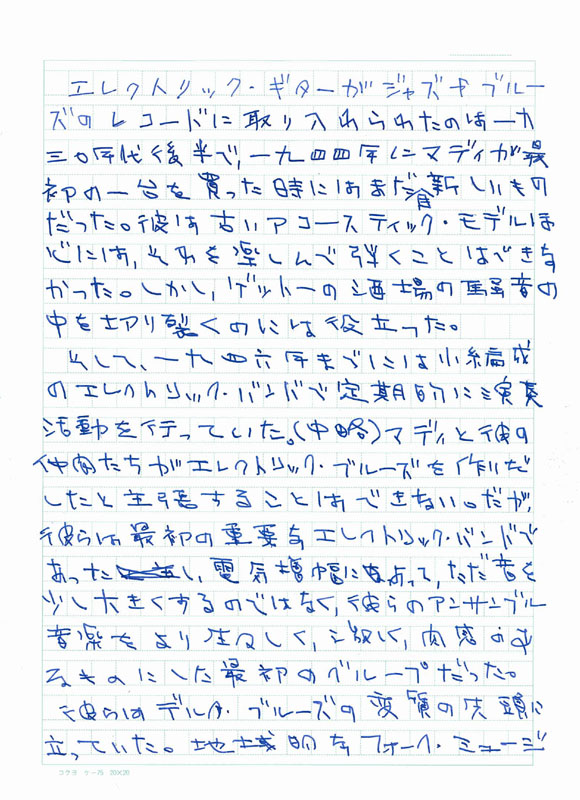 エレクトリック・ギターがジャズやブルー
ズのレコードに取り入れられたのは一九
三〇年代後半で、一九四四年にマディが最
初の一台を買った時にはまだ新しいもの
だった。彼は古いアコースティック・モデルほ
どには、それを楽しんで弾くことはできな
かった。しかし、ゲットーの酒場の騒音の
中を切り裂くのには役立った。
そして、一九四六年までには小編成
のエレクトリック・バンドで定期的に演奏
活動を行っていた。(中略)マディと彼の
仲間たちがエレクトリック・ブルーズを作りだ
したと主張することはできない。だが、
彼らは最初の重要なエレクトリック・バンドで
あったし、電気増幅によって、ただ音を
少し大きくするのではなく、彼らのアンサンブル
音楽をより生々しく、激しく、肉感的な
るものにした最初のグループだった。
彼らはデルタ・ブルーズの変質の先頭に
立っていた。地域的なフォーク・ミュージ
コクヨ ケー75 20×20